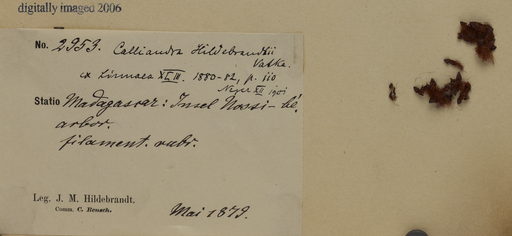 digitally imaged 2006
No. 2953. Calliandra Hildebrandtii
Vatke.
ex Linnaea XLIII. 1880-82, p. 110
XII 1901
Statio Madagascar: Insel Nossi-bé.
arbor.
filament. rubr.
Leg. J. M. Hildebrandt.
Comm. C. Rensch.
Mai 1879.